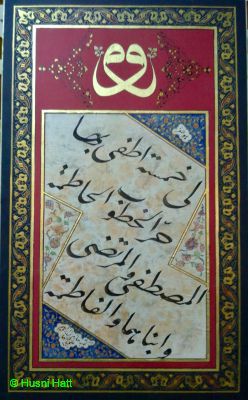 وو
لى خمسة اطفى بها
حر الخطوب الحاطمة
المصطفى والمرتضى
وابناهما والفاطمة
© Husni Hatt